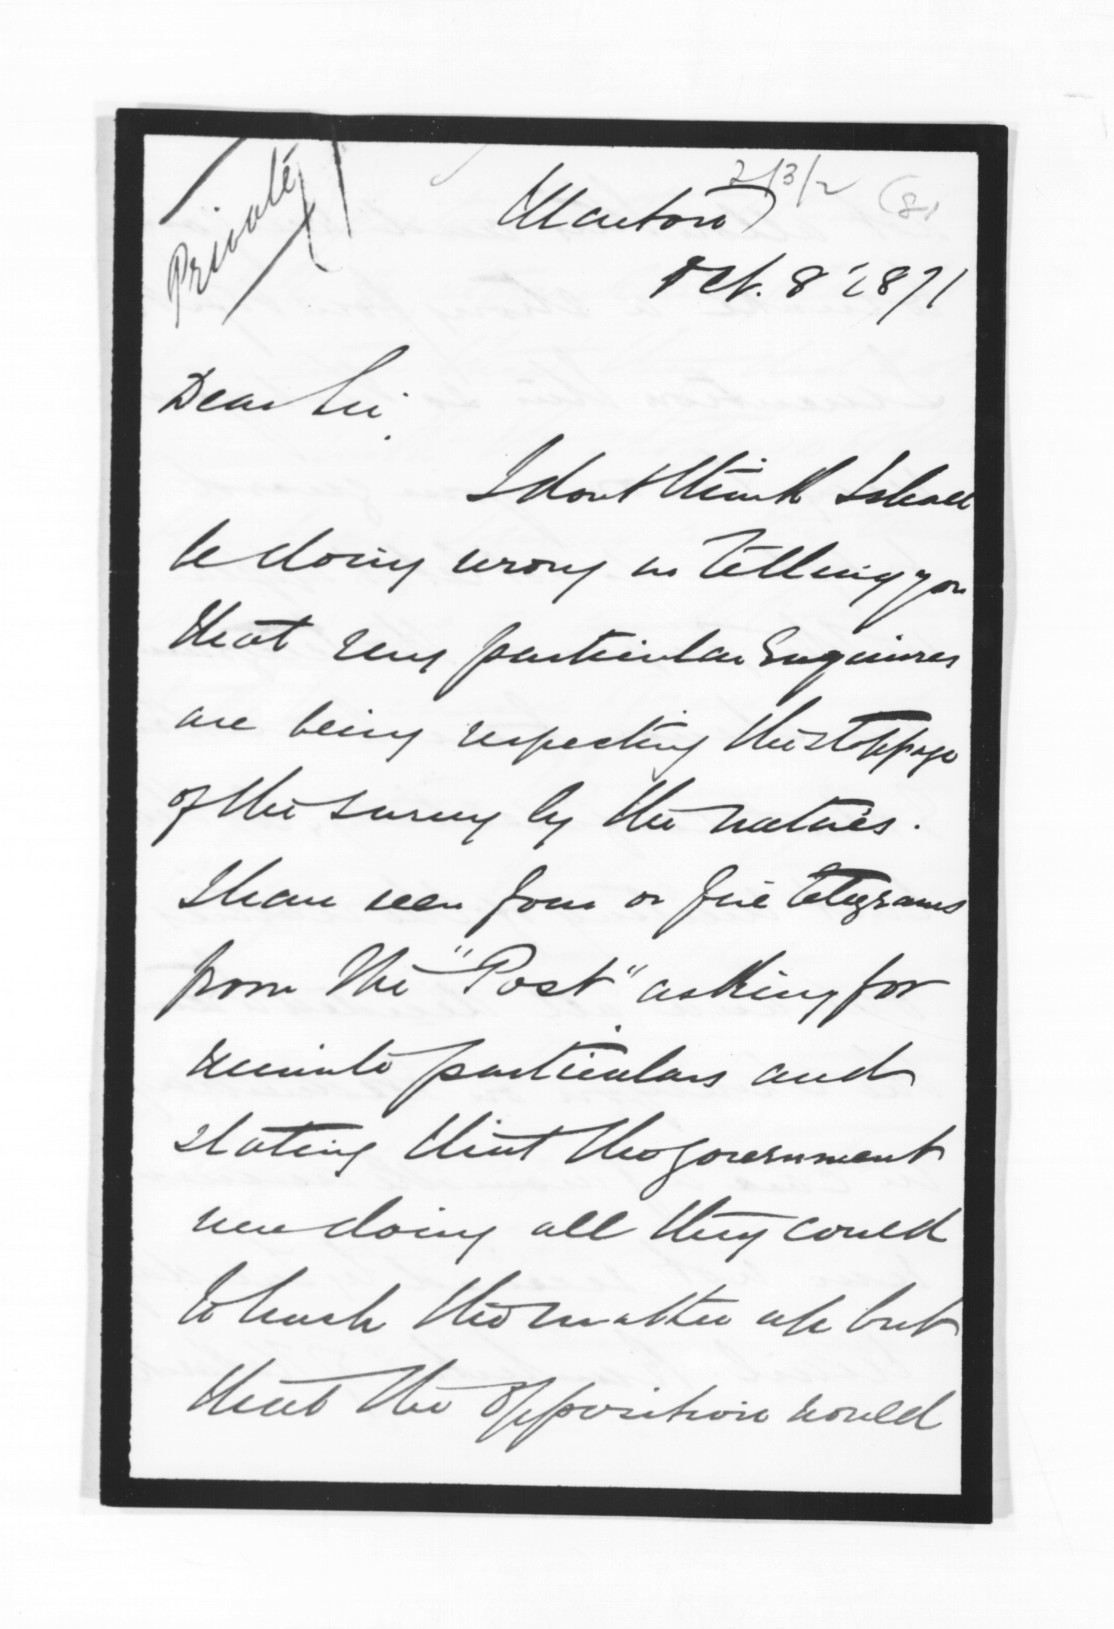 Private
2/3/2 (8)
Marton
Oct. 8 1871
Dear Sir.
I dont think I shall
be doing wrong in telling you
that very particular Enquiries
are being respecting the stoppage
of the survey by the natives.
I have seen four or five telegrams
from the "Post" asking for
minute particulars and
stating that the government
were doing all they could
to hush the matter up but
that the opposition would